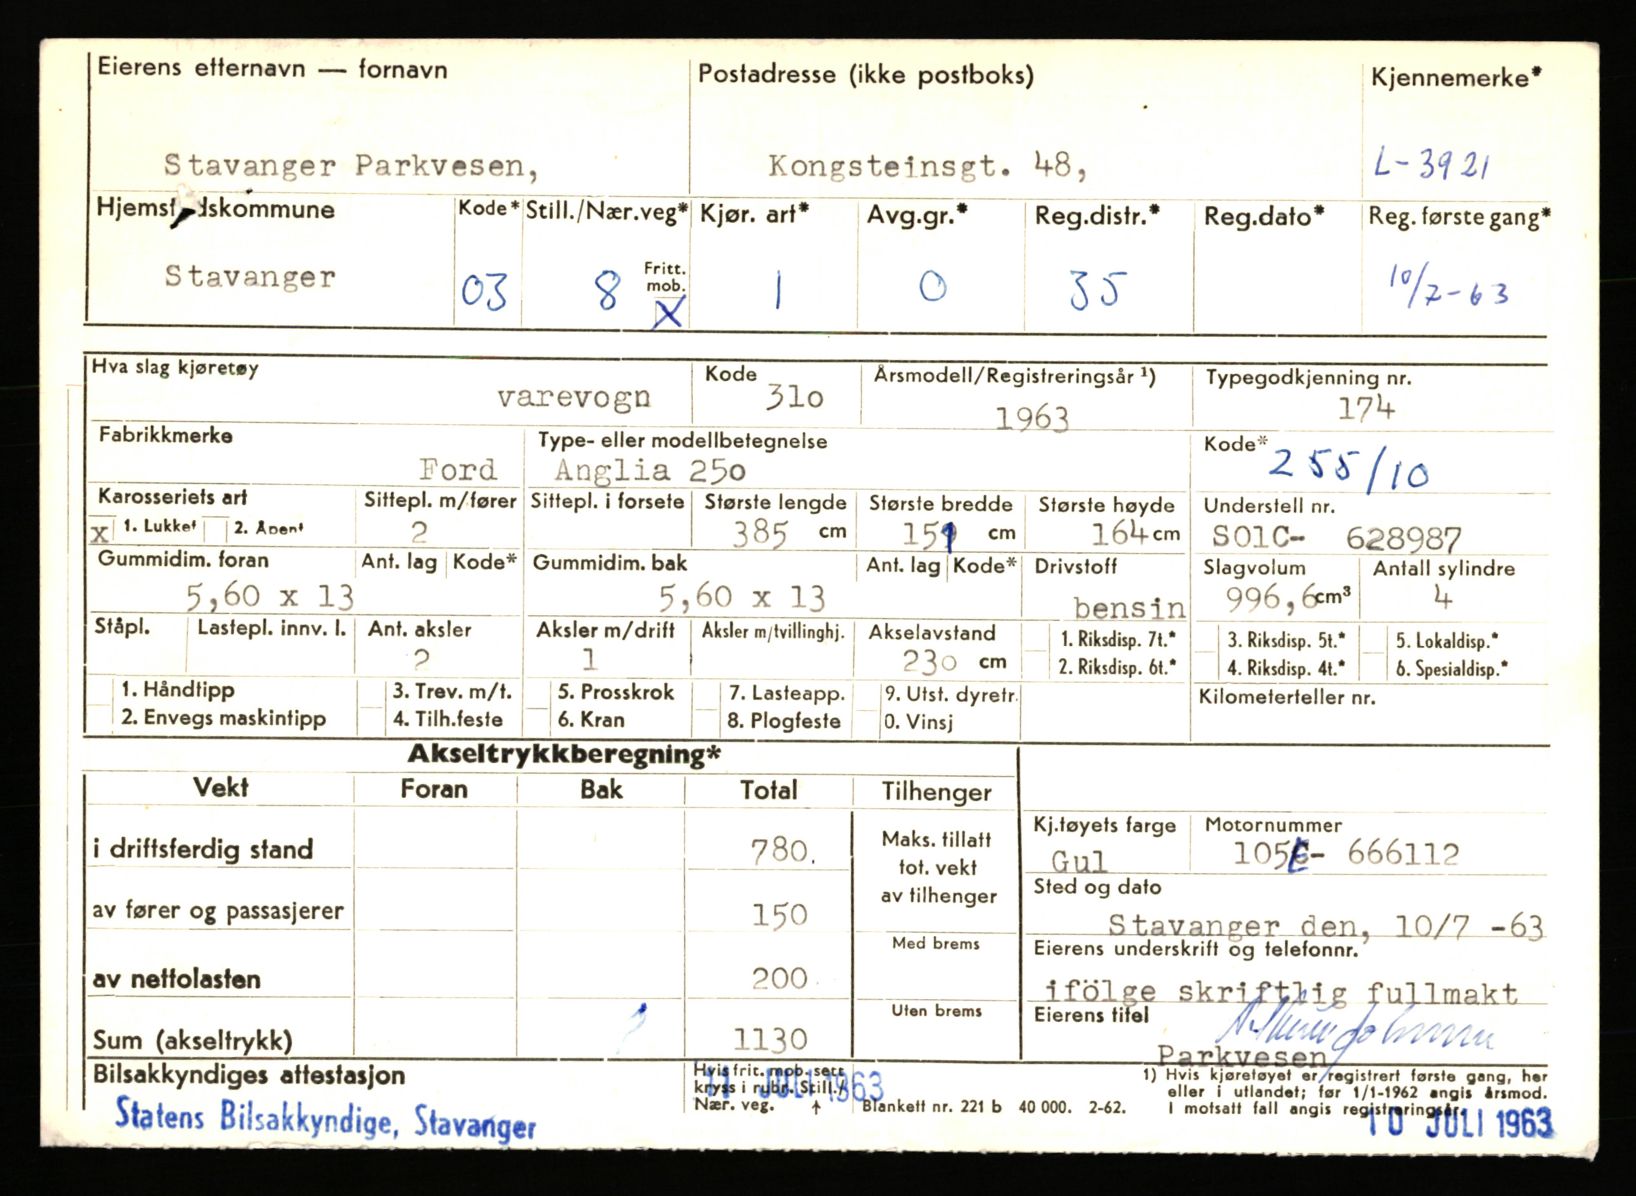 Eierens etternavn — fornavn
Postadresse (ikke postboks)
Kjennemerke*
Stavanger Parkvesen,
Kongsteinsgt. 48,
L-3921
Kode* Still./Nær.veg* Kjør. art* Avg.gr.* Reg.distr.* Reg.dato* Reg. første gang*
Stavanger 03 8 Fritt. mob. X 1 0 35 10/7-63
Hva slag kjøretøy
varevogn
Kode
31o
Årsmodell/Registreringsår ¹)
1963
Typegodkjenning nr.
174
Fabrikkmerke
Ford
Type- eller modellbetegnelse
Anglia 25o
Kode*
255/10
Karosseriets art
x 1. Lukket 2. Åpent
Sittepl. m/fører
2
Sittepl. i forsete
Største lengde
385 cm
Største bredde
151 cm
Største høyde
164 cm
Understell nr.
S01C- 628987
Gummidim. foran
5,60 x 13
Ant. lag Kode*
Gummidim. bak
5,60 x 13
Ant. lag Kode*
Drivstoff
bensin
Slagvolum
996,6 cm³
Antall sylindre
4
Ståpl.
Lastepl. innv. l.
Ant. aksler
2
Aksler m/drift
1
Aksler m/tvillinghj.
Akselavstand
23o cm
1. Riksdisp. 7t.* 3. Riksdisp. 5t.* 5. Lokaldisp.*
2. Riksdisp. 6t.* 4. Riksdisp. 4t.* 6. Spesialdisp.*
1. Håndtipp 3. Trev. m/t. 5. Prosskrok 7. Lasteapp. 9. Utst. dyretr.
2. Envegs maskintipp 4. Tilh.feste 6. Kran 8. Plogfeste 0. Vinsj
Kilometerteller nr.
Akseltrykkberegning*
Vekt Foran Bak Total Tilhenger
i driftsferdig stand 780.
av fører og passasjerer 150
av nettolasten 200
Sum (akseltrykk) 1130
Maks. tillatt
tot. vekt
av tilhenger
Med brems
Uten brems
Kj.tøyets farge
Gul
Motornummer
105E- 666112
Sted og dato
Stavanger den, 10/7 -63
Eierens underskrift og telefonnr.
ifölge skriftlig fullmakt
Eierens titel
Parkvesen
Bilsakkyndiges attestasjon
Statens Bilsakkyndige, Stavanger
Hvis frit. mob. sett
kryss i rubr. Still./
Nær. veg. ↑
11 JULI 1963
Blankett nr. 221 b 40 000. 2-62.
1) Hvis kjøretøyet er registrert første gang, her
eller i utlandet; før 1/1-1962 angis årsmod.
I motsatt fall angis registreringsår.
10 JULI 1963